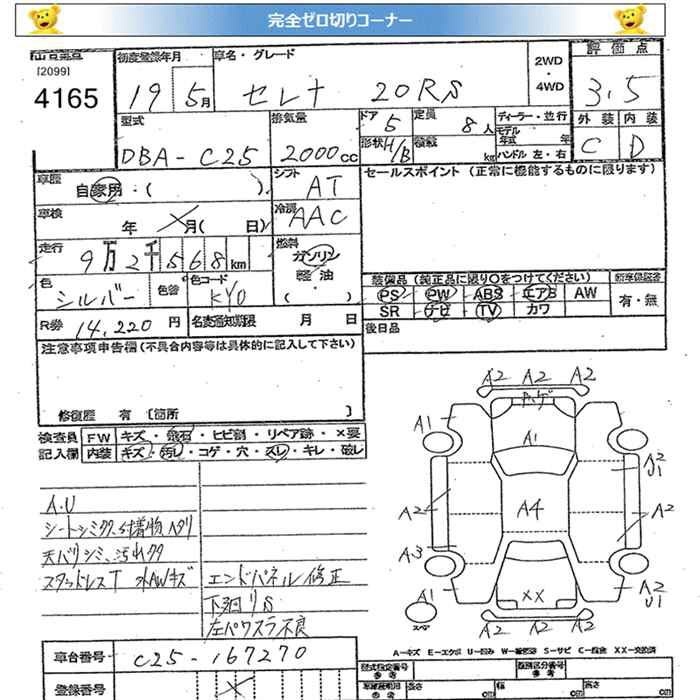 完全ゼロ切りコーナー
[2099]
4165
初度登録年月
19 5月
車名・グレード
セレナ 20RS
2WD ・ 4WD
評価点
3.5
外装 内装
C D
型式
DBA-C25
排気量
2000cc
ドア 5
形状 H/B
定員 8人
積載 kg
ディーラー・並行
モデル年式 年
ハンドル 左・右
車歴
自家用・( )
シフト
AT
セールスポイント (正常に機能するものに限ります)
車検
年 月( 日)
冷房
AAC
走行
9万2千568km
燃料
ガソリン
軽油
( ・ )
色
シルバー
色替
色コード
KY0
装備品 (純正品に限り○をつけてください)
PS PW ABS エアB AW
SR ナビ TV カワ
新車保証書
有・無
R券 14,220円
名変通知期限 月 日
後日品
注意事項申告欄 (不具合内容等は具体的に記入して下さい)
修復歴 有 [箇所 ]
検査員
記入欄
FW キズ・飛石・ヒビ割・リペア跡・×要
内装 キズ・汚レ・コゲ・穴・スレ・キレ・破レ
A.U
シートシミ
天バリシミ、汚れ
スタッドレスT 外AWキズ
エンドパネル修正
下廻りS
左パワスラ不良
A2 A2 A2
A1
A1
A2
U1
A2
A4
A2
A3
A1
XX
A2
U1
スペア
A2 A2 A2
A-キズ E-エクボ U-凹み W-補修跡 S-サビ C-腐食 XX-交換済
車台番号
C25-167270
登録番号
型式指定番号
参考
類別区分番号
参考
車検証明日
参考
長さ cm
幅 cm
高さ cm